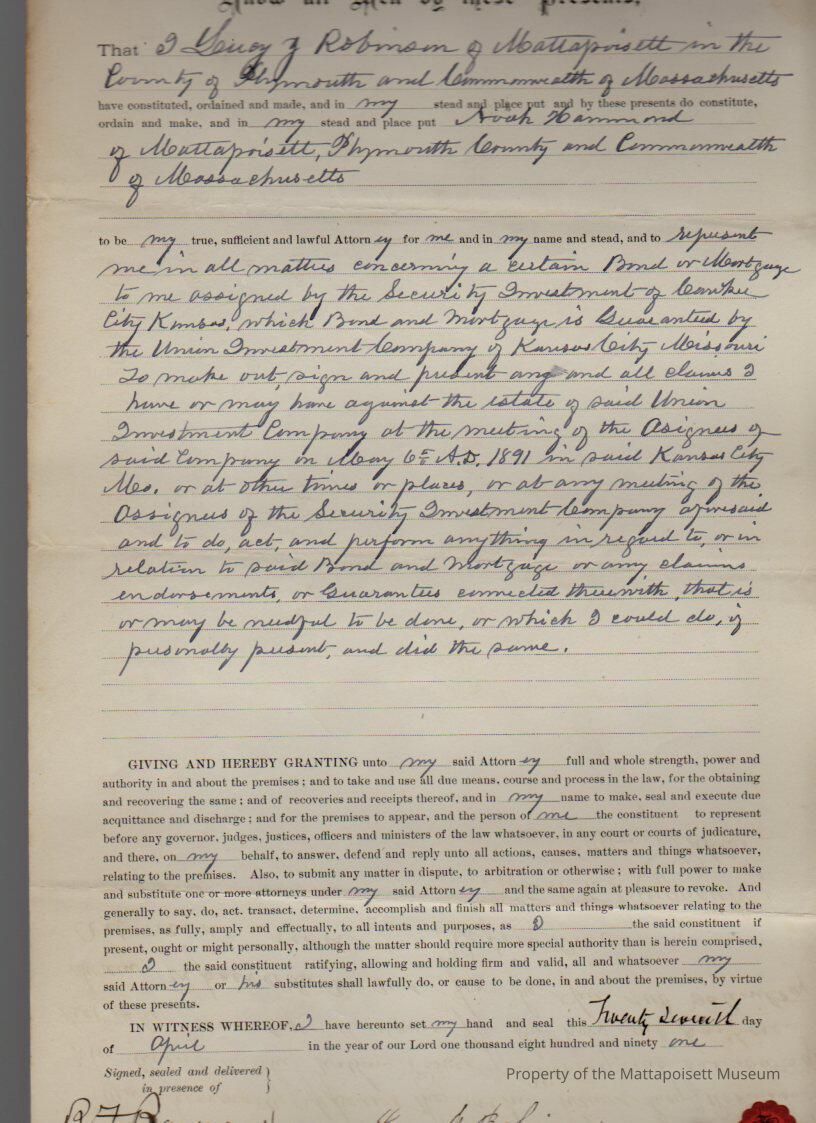 Know all Men by these Presents,
That I Lucy Robinson of Mattapoisett in the
County of Plymouth and Commonwealth of Massachusetts
have constituted, ordained and made, and in my stead and place put and by these presents do constitute,
ordain and make, and in my stead and place put Noah Hammond
of Mattapoisett, Plymouth County and Commonwealth
of Massachusetts
to be my true, sufficient and lawful Attorn ey for me and in my name and stead, and to represent
me in all matters concerning a certain Bond or Mortgage
to me assigned by the Security Investment of
City Kansas, which Bond and Mortgage is Guaranteed by
the Union Investment Company of Kansas City Missouri
To make out, sign and present any and all claims I
have or may have against the estate of said Union
Investment Company at the meeting of the Asignees of
said Company on May 6th A.D. 1891 in said Kansas City
Mo. or at other times or places, or at any meeting of the
Assignees of the Security Investment Company aforesaid
and to do, act, and perform anything in regard to, or in
relation to said Bond and Mortgage or any claims
endorsements, or Guarantees connected therewith, that is
or may be needful to be done, or which I could do, if
personally present, and did the same.
GIVING AND HEREBY GRANTING unto my said Attorn ey full and whole strength, power and
authority in and about the premises; and to take and use all due means, course and process in the law, for the obtaining
and recovering the same; and of recoveries and receipts thereof, and in my name to make, seal and execute due
acquittance and discharge; and for the premises to appear, and the person of me the constituent to represent
before any governor, judges, justices, officers and ministers of the law whatsoever, in any court or courts of judicature,
and there, on my behalf, to answer, defend and reply unto all actions, causes, matters and things whatsoever,
relating to the premises. Also, to submit any matter in dispute, to arbitration or otherwise; with full power to make
and substitute one or more attorneys under my said Attorn ey and the same again at pleasure to revoke. And
generally to say, do, act, transact, determine, accomplish and finish all matters and things whatsoever relating to the
premises, as fully, amply and effectually, to all intents and purposes, as I the said constituent if
present, ought or might personally, although the matter should require more special authority than is herein comprised,
I the said constituent ratifying, allowing and holding firm and valid, all and whatsoever my
said Attorn ey or his substitutes shall lawfully do, or cause to be done, in and about the premises, by virtue
of these presents.
IN WITNESS WHEREOF, I have hereunto set my hand and seal this Twenty Seventh day
of April in the year of our Lord one thousand eight hundred and ninety one
Signed, sealed and delivered
in presence of
Property of the Mattapoisett Museum